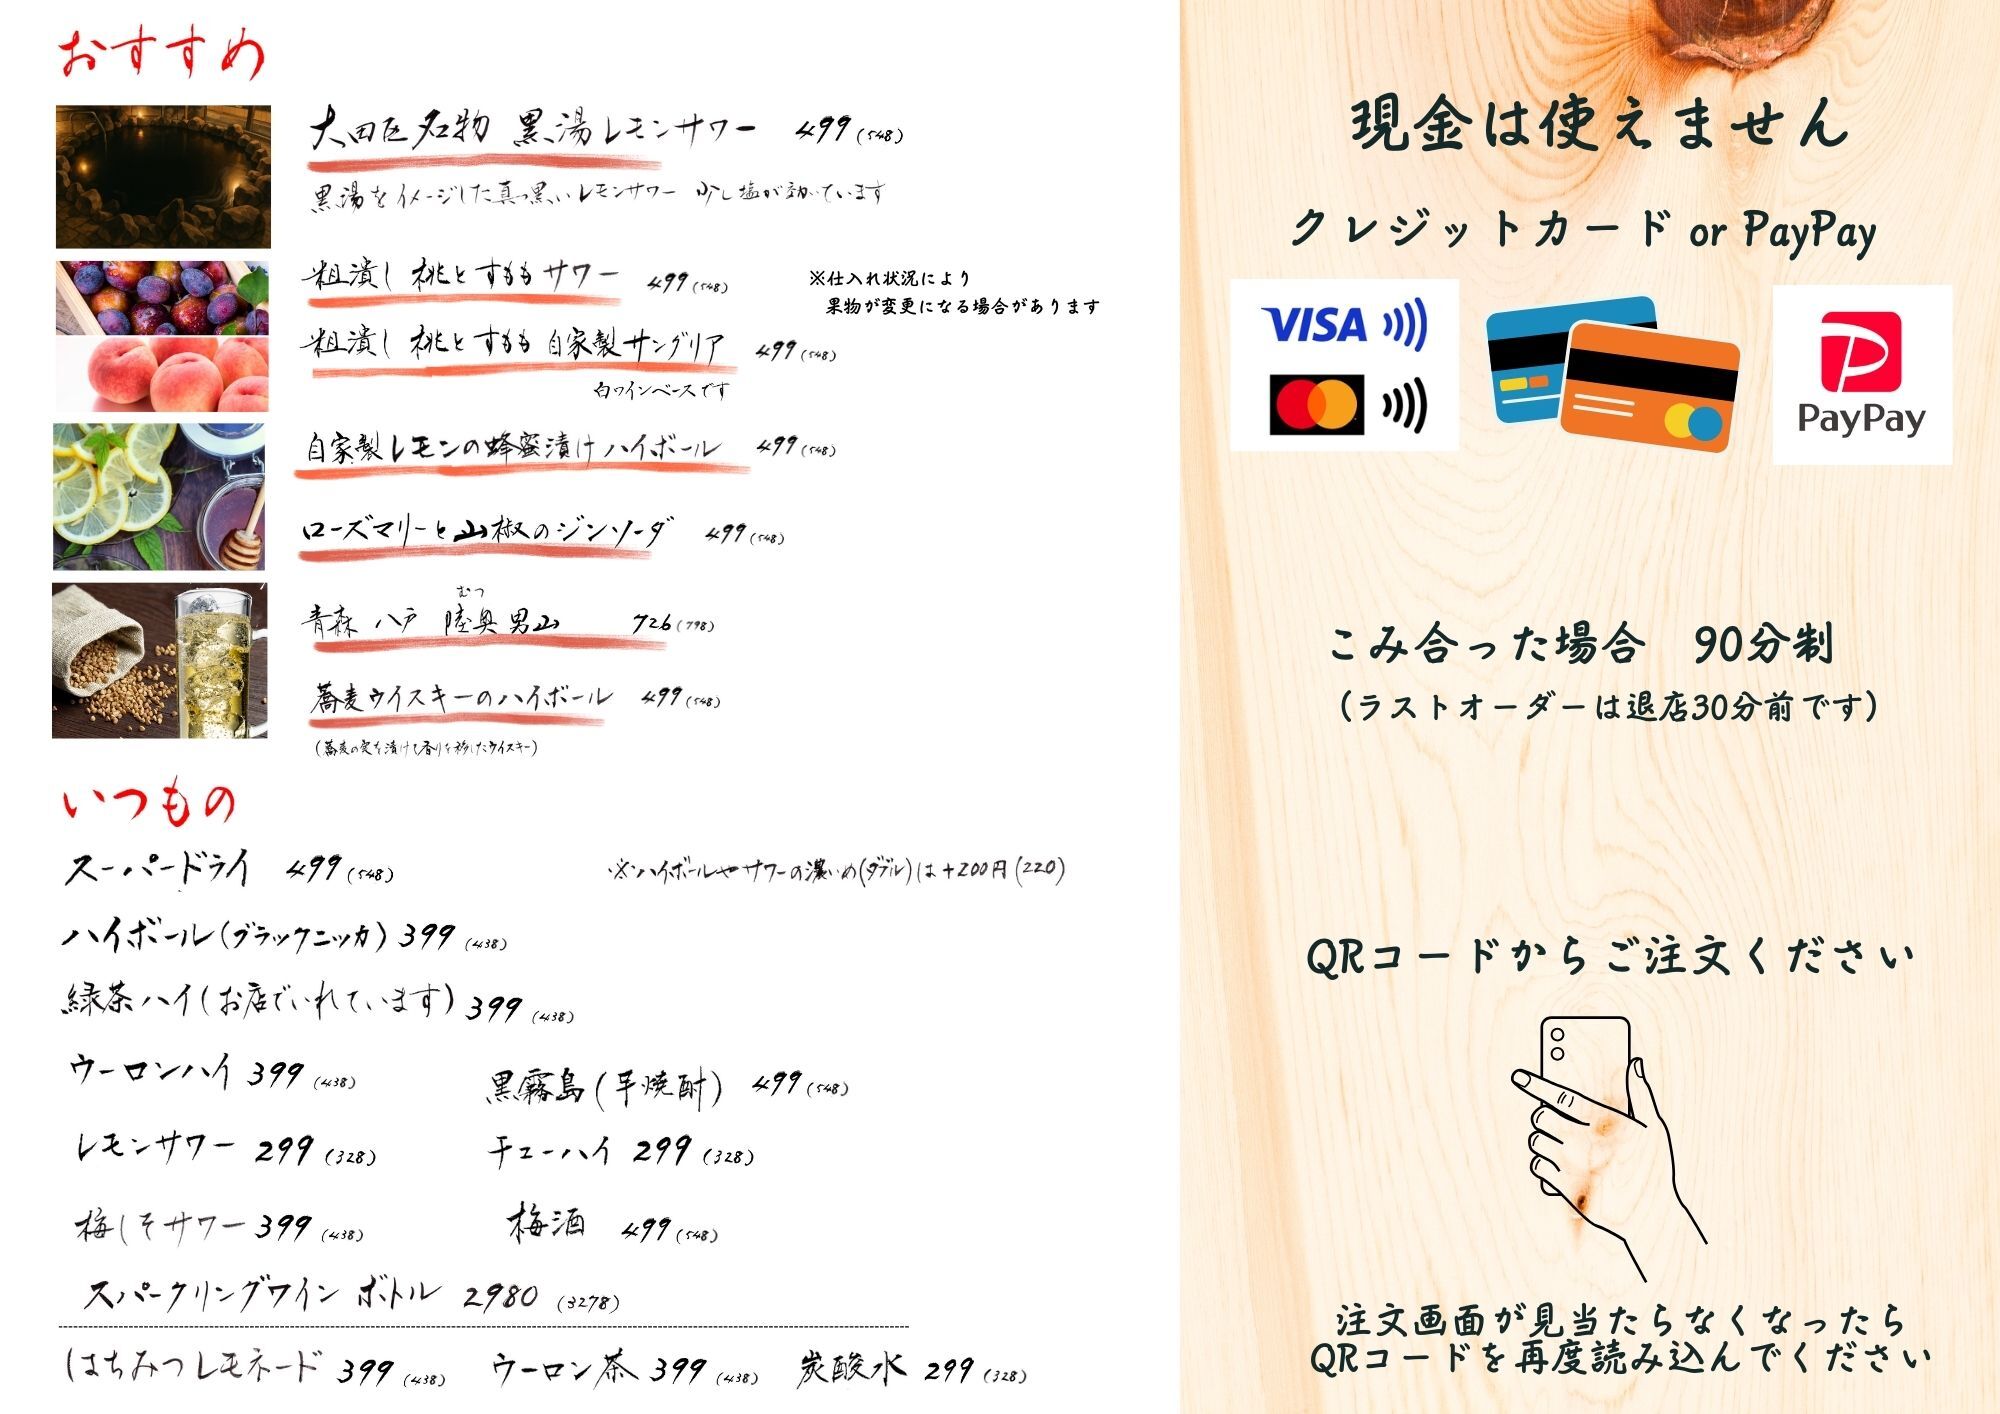 おすすめ
大田区名物 黒湯レモンサワー 499(548)
黒湯をイメージした真っ黒いレモンサワー 少し塩が効いています
粗潰し 桃とすももサワー 499(548)
※仕入れ状況により
果物が変更になる場合があります
粗潰し 桃とすもも 自家製サングリア 499(548)
白ワインベースです
自家製レモンの蜂蜜漬け ハイボール 499(548)
ローズマリーと山椒のジンソーダ 499(548)
むつ
青森 八戸 陸奥男山 726(798)
蕎麦ウイスキーのハイボール 499(548)
(蕎麦の実を漬けて香りを移したウイスキー)
いつもの
スーパードライ 499(548)
※ハイボールやサワーの濃いめ(ダブル)は+200円(220)
ハイボール(ブラックニッカ) 399(438)
緑茶ハイ(お店でいれています) 399(438)
ウーロンハイ 399(438)
黒霧島(芋焼酎) 499(548)
レモンサワー 299(328)
チューハイ 299(328)
梅しそサワー 399(438)
梅酒 499(548)
スパークリングワイン ボトル 2980(3278)
はちみつレモネード 399(438) ウーロン茶 399(438) 炭酸水 299(328)
現金は使えません
クレジットカード or PayPay
VISA
PayPay
こみ合った場合 90分制
(ラストオーダーは退店30分前です)
QRコードからご注文ください
注文画面が見当たらなくなったら
QRコードを再度読み込んでください